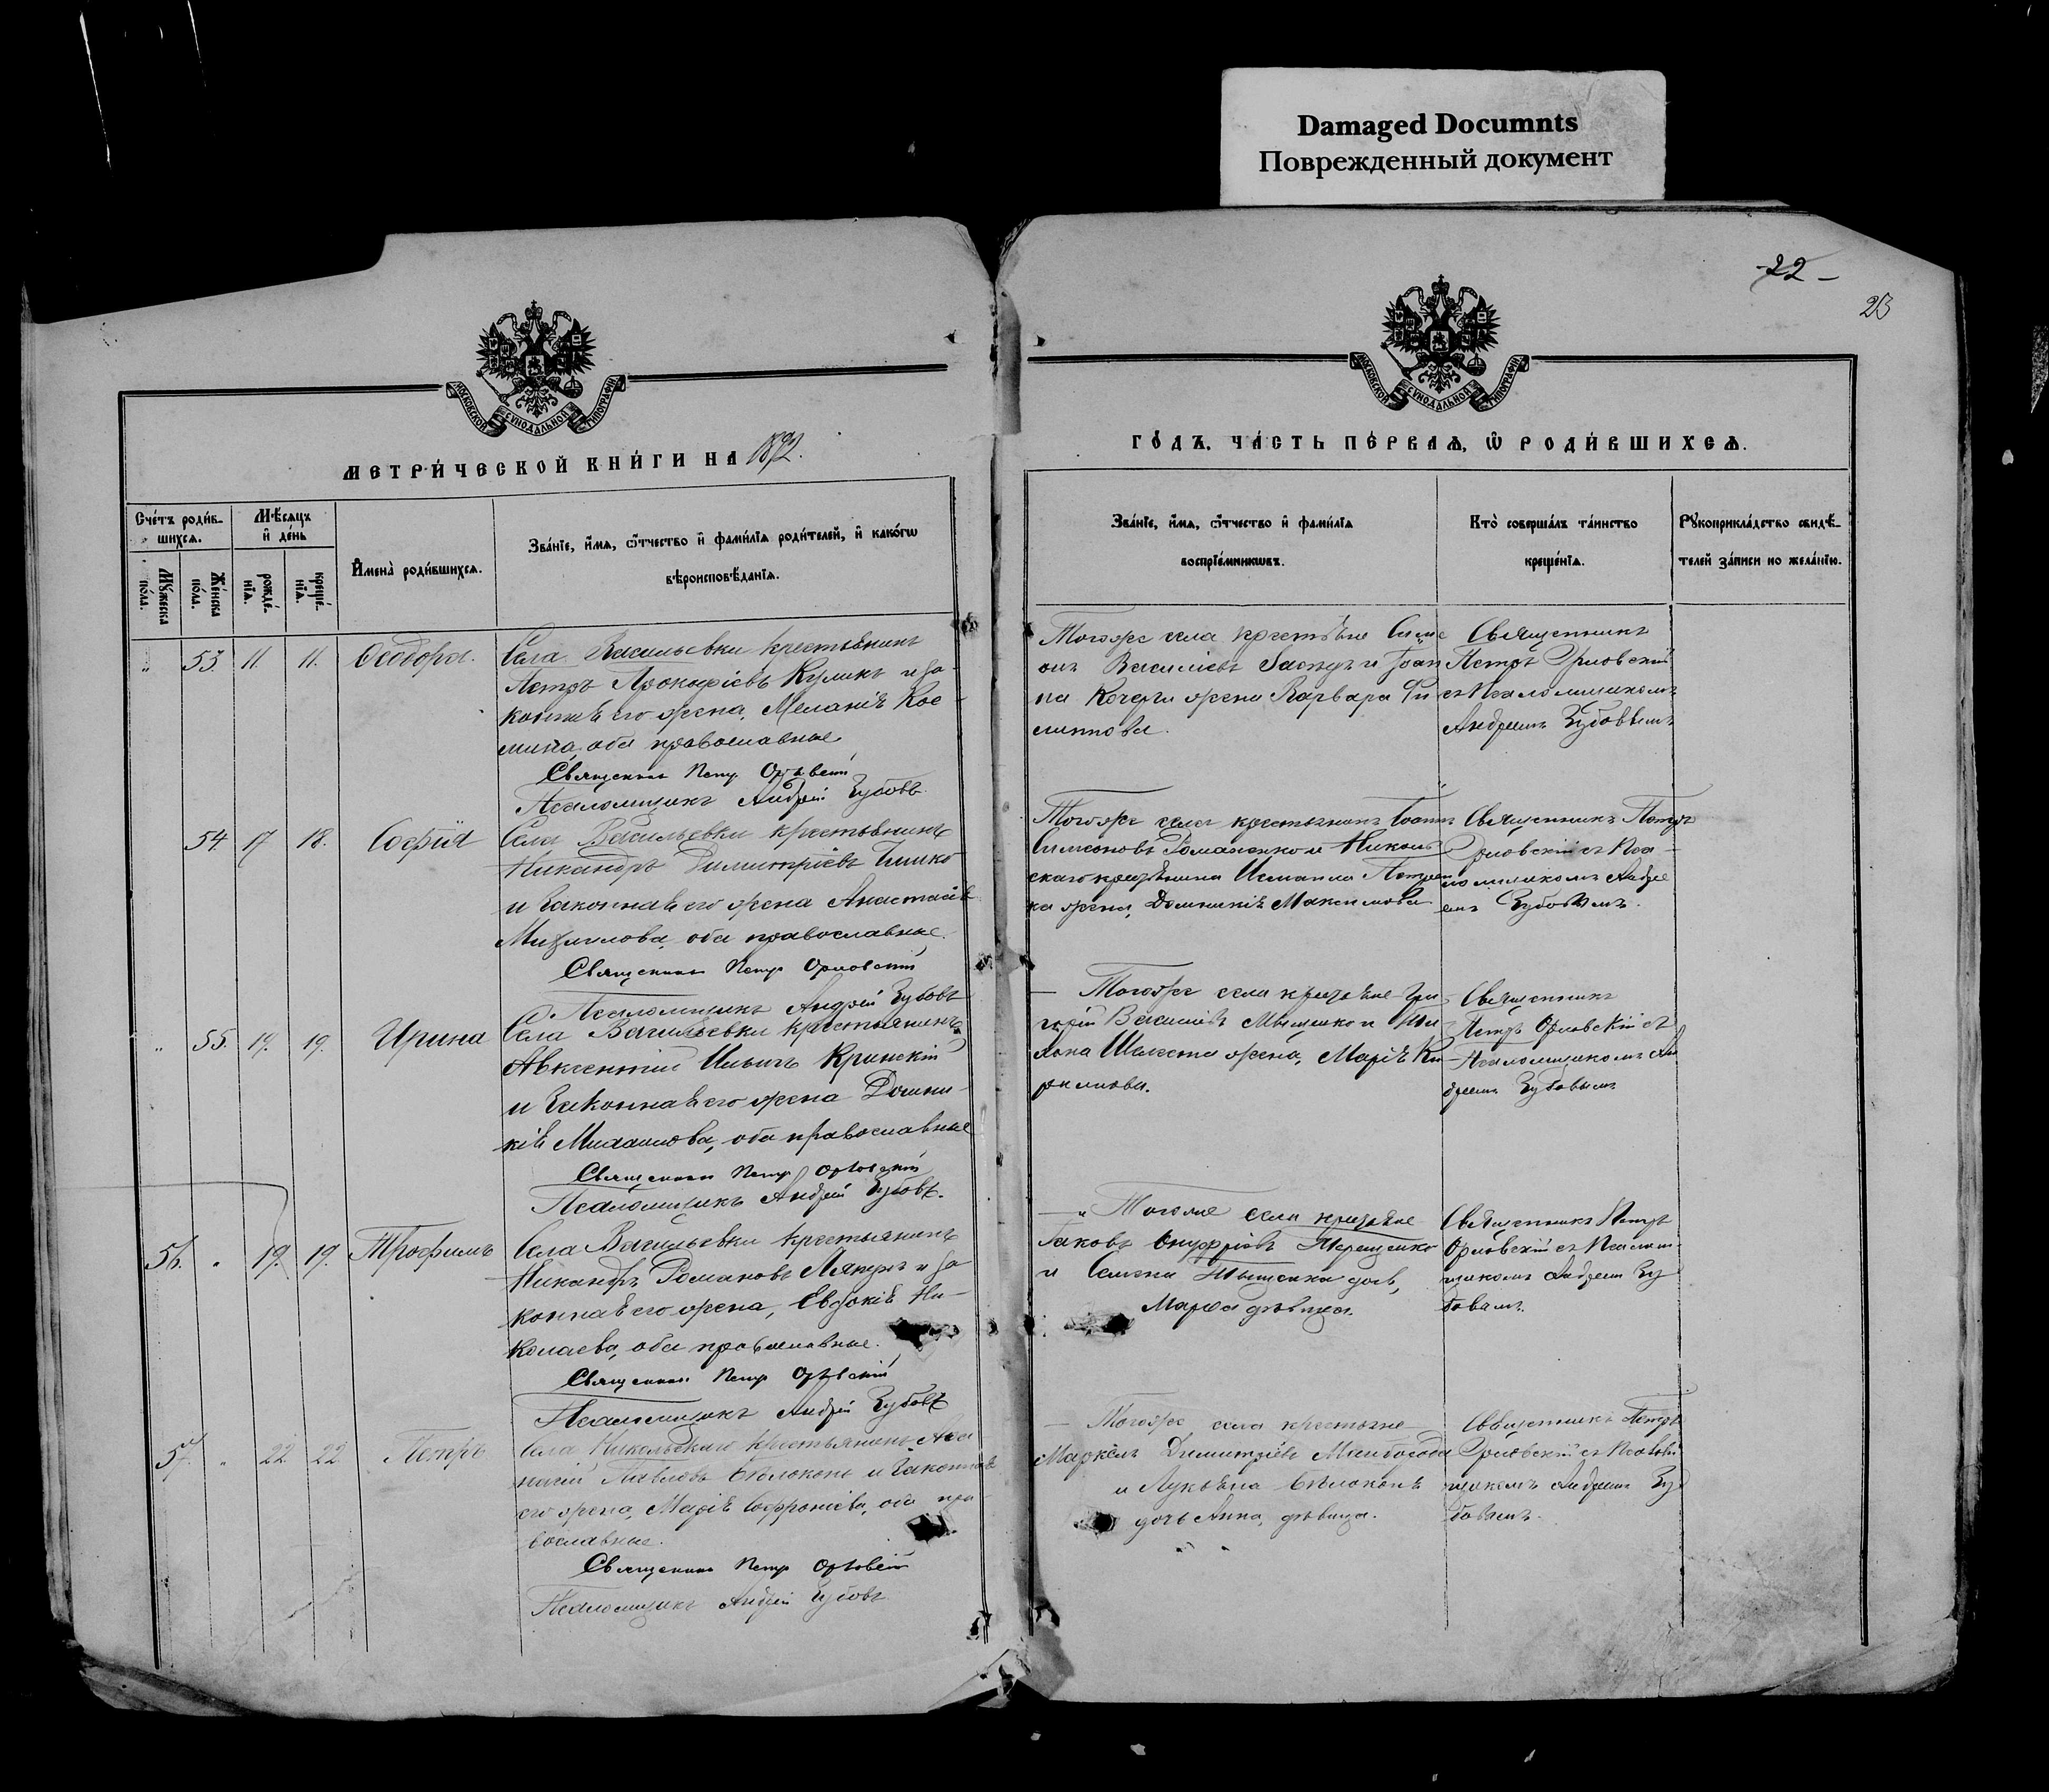 Damaged Documnts
Поврежденный документ
-22-
23
МОСКОВСКОЙ СѴНОДАЛЬНОЙ ТИПОГРАФІИ
МОСКОВСКОЙ СѴНОДАЛЬНОЙ ТИПОГРАФІИ
МЕТРИ́ЧЕСКОЙ КНИ́ГИ НА 1892.
ГО́ДЪ, ЧА́СТЬ ПЕ́РВАѦ, Ѡ҆ РОДИ́ВШИХСѦ.
Сче́тъ роди́в-
шихсѧ.
Мѣ́сѧцъ
и҆ де́нь
Мꙋ́жеска
по́ла.
Же́нска
по́ла.
рожде́-
нїѧ.
креще́-
нїѧ.
И҆мена̀ роди́вшихсѧ.
Зва́нїе, и҆́мѧ, ѻ҆́тчество и҆ фами́лїѧ роди́телей, и҆ како́гѡ
вѣроисповѣ́данїѧ.
Зва́нїе, и҆́мѧ, ѻ҆́тчество и҆ фами́лїѧ
воспрїе́мникѡвъ.
Кто̀ соверша́лъ та́инство
креще́нїѧ.
Рꙋкоприкла́дство свидѣ́-
телей за́писи по жела́нїю.
„ 53 11. 11. Ѳеодора.
Села Васильевки крестьянинъ
Петръ Прокофіевъ Куликъ и за-
конная его жена, Меланія Кос-
мина, оба православные
Священникъ Петръ Орловскій
Псаломщикъ Андрей Зубовъ.
Тогоже села крестьяне Симе
онъ Василіевъ и
на Кочерги жена Варвара Фи
липпова.
Священникъ
Петръ Орловскій
съ Псаломщикомъ
Андреемъ Зубовымъ
54. 17 18. Софія
Села Васильевки крестьянинъ
Никандръ Димитріевъ
и законная его жена Анастасія
Михайлова, оба православные.
Священникъ Петръ Орловскій
Псаломщикъ Андрей Зубовъ
Тогоже села крестьянинъ Іоаннъ
Симеоновъ Романенко и Николь
скаго крестьянина Петрен
ка жена, Домникія Максимова
Священникъ Петръ
Орловскій съ Пса-
ломщикомъ Андре
емъ Зубовымъ.
„ 55. 19. 19. Ирина
Села Васильевки крестьянинъ
Авксентій Ильинъ Кринскій
и законная его жена Домни-
кія оба православные
Священникъ Петръ Орловскій
Псаломщикъ Андрей Зубовъ.
Тогоже села крестьяне Гри
горій Василіевъ и
Шелеста жена, Марія Ки
рилова.
Священникъ
Петръ Орловскій съ
Псаломщикомъ Ан
дреемъ Зубовымъ
56. „ 19. 19. Трофимъ
Села Васильевки крестьянинъ
Никандръ Романовъ и за
конная его жена, Евдокія Ни-
колаева, оба православные.
Священникъ Петръ Орловскій
Псаломщикъ Андрей Зубовъ
„ Тогоже села крестьяне
Іаковъ Онуфріевъ Терещенко
и Семена дочь,
Марѳа дѣвица.
Священникъ Петръ
Орловскій съ Псалом-
щикомъ Андреемъ Зу
бовымъ.
57. „ 22 22 Петръ
Села Никольскаго крестьянинъ
Павловъ Бѣлоконь и законная
его жена, Марія Софроніева, оба пра-
вославные.
Священникъ Петръ Орловскій
Псаломщикъ Андрей Зубовъ
Тогоже села крестьяне
Маркелъ Димитріевъ
и Бѣлоконь
дочь Анна, дѣвица.
Священникъ Петръ
Орловскій съ
щикомъ Андреемъ Зу
бовымъ.